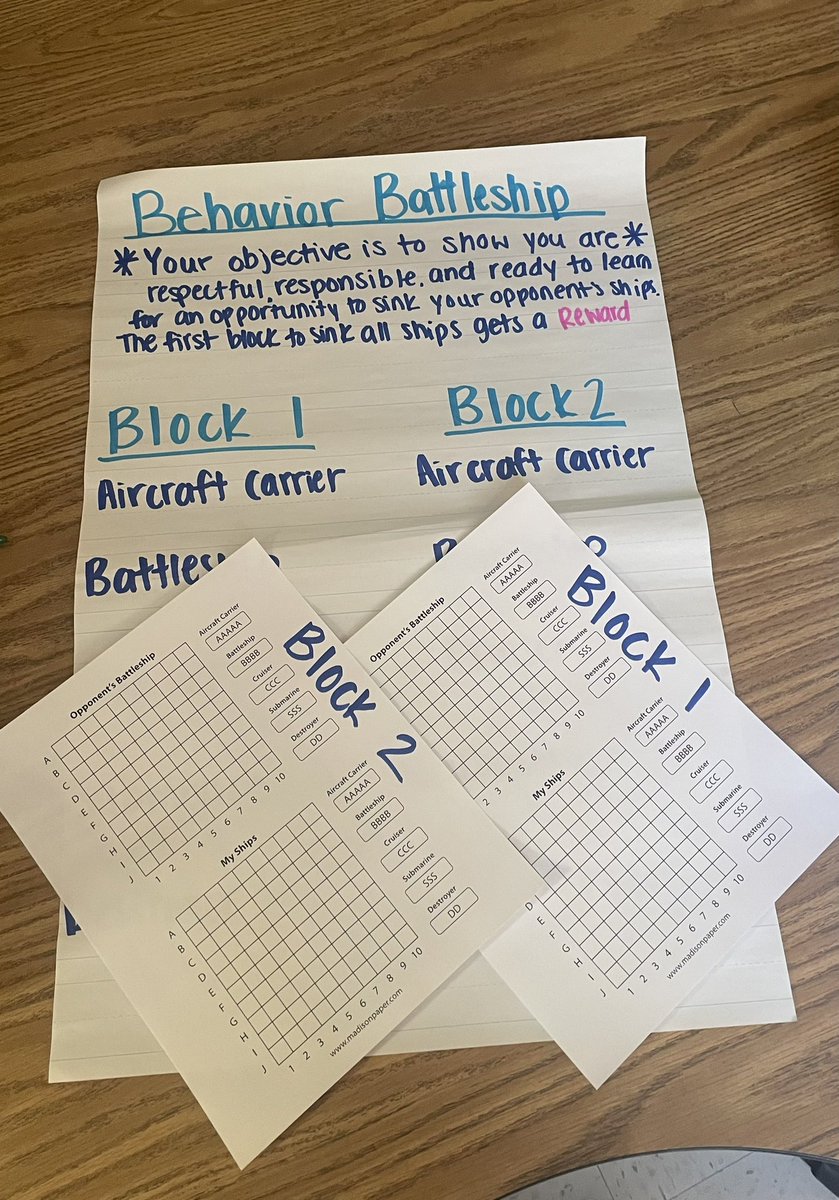 Behavior Battleship
*Your objective is to show you are*
respectful, responsible, and ready to learn
for an opportunity to sink your opponent's ships.
The first block to sink all ships gets a Reward
Block 1
Block 2
Aircraft Carrier
Aircraft Carrier
Block 2
Opponent's Battleship
A
B
C
D
E
F
G
H
J
1 2 3 4 5 6 7 8 9 10
Aircraft Carrier
AAAAA
Battleship
BBBB
Cruiser
CCC
Submarine
SSS
Destroyer
DD
My Ships
A
B
C
D
E
F
G
H
I
J
1 2 3 4 5 6 7 8 9 10
Aircraft Carrier
AAAAA
Battleship
BBBB
Cruiser
CCC
Submarine
SSS
Destroyer
DD
www.madisonpaper.com
Block 1
Opponent's Battleship
2 3 4 5 6 7 8 9 10
Aircraft Carrier
AAAAA
Battleship
BBBB
Cruiser
CCC
Submarine
SSS
Destroyer
DD
My Ships
D
E
F
G
H
I
J
1 2 3 4 5 6 7 8 9 10
Aircraft Carrier
AAAAA
Battleship
BBBB
Cruiser
CCC
Submarine
SSS
Destroyer
DD
www.madisonpaper.com